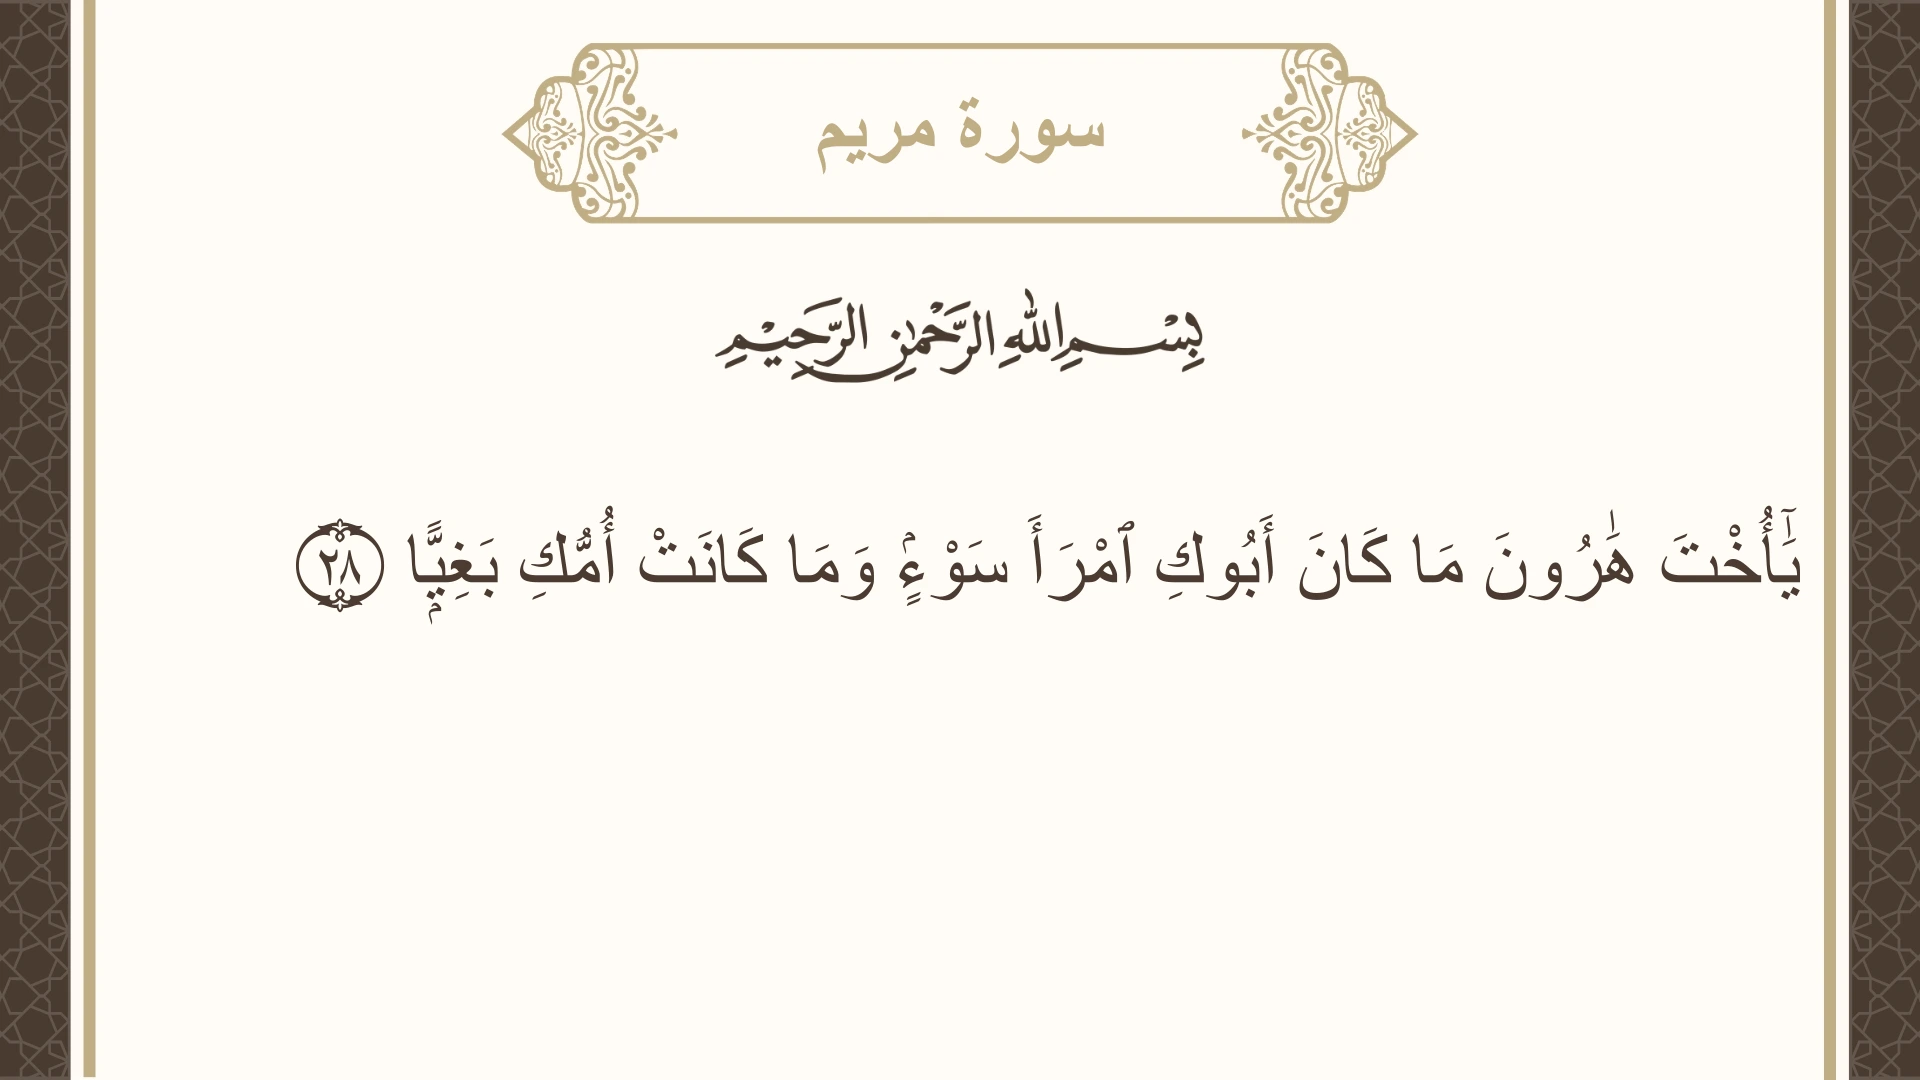 سورة مريم
بِسْمِ اللهِ الرَّحْمٰنِ الرَّحِيْمِ
يَٰٓأُخْتَ هَٰرُونَ مَا كَانَ أَبُوكِ ٱمْرَأَ سَوْءٍۢ وَمَا كَانَتْ أُمُّكِ بَغِيًّۭا ٢٨